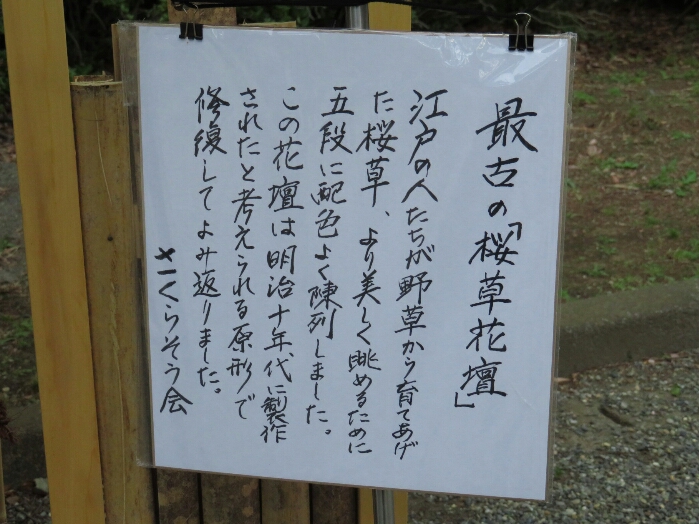 最古の「桜草花壇」
江戸の人たちが野草から育てあげ
た桜草、より美しく眺めるために
五段に配色よく陳列しました。
この花壇は明治十年代に製作
されたと考えられる原形で
修復してよみ返りました。
さくらそう会